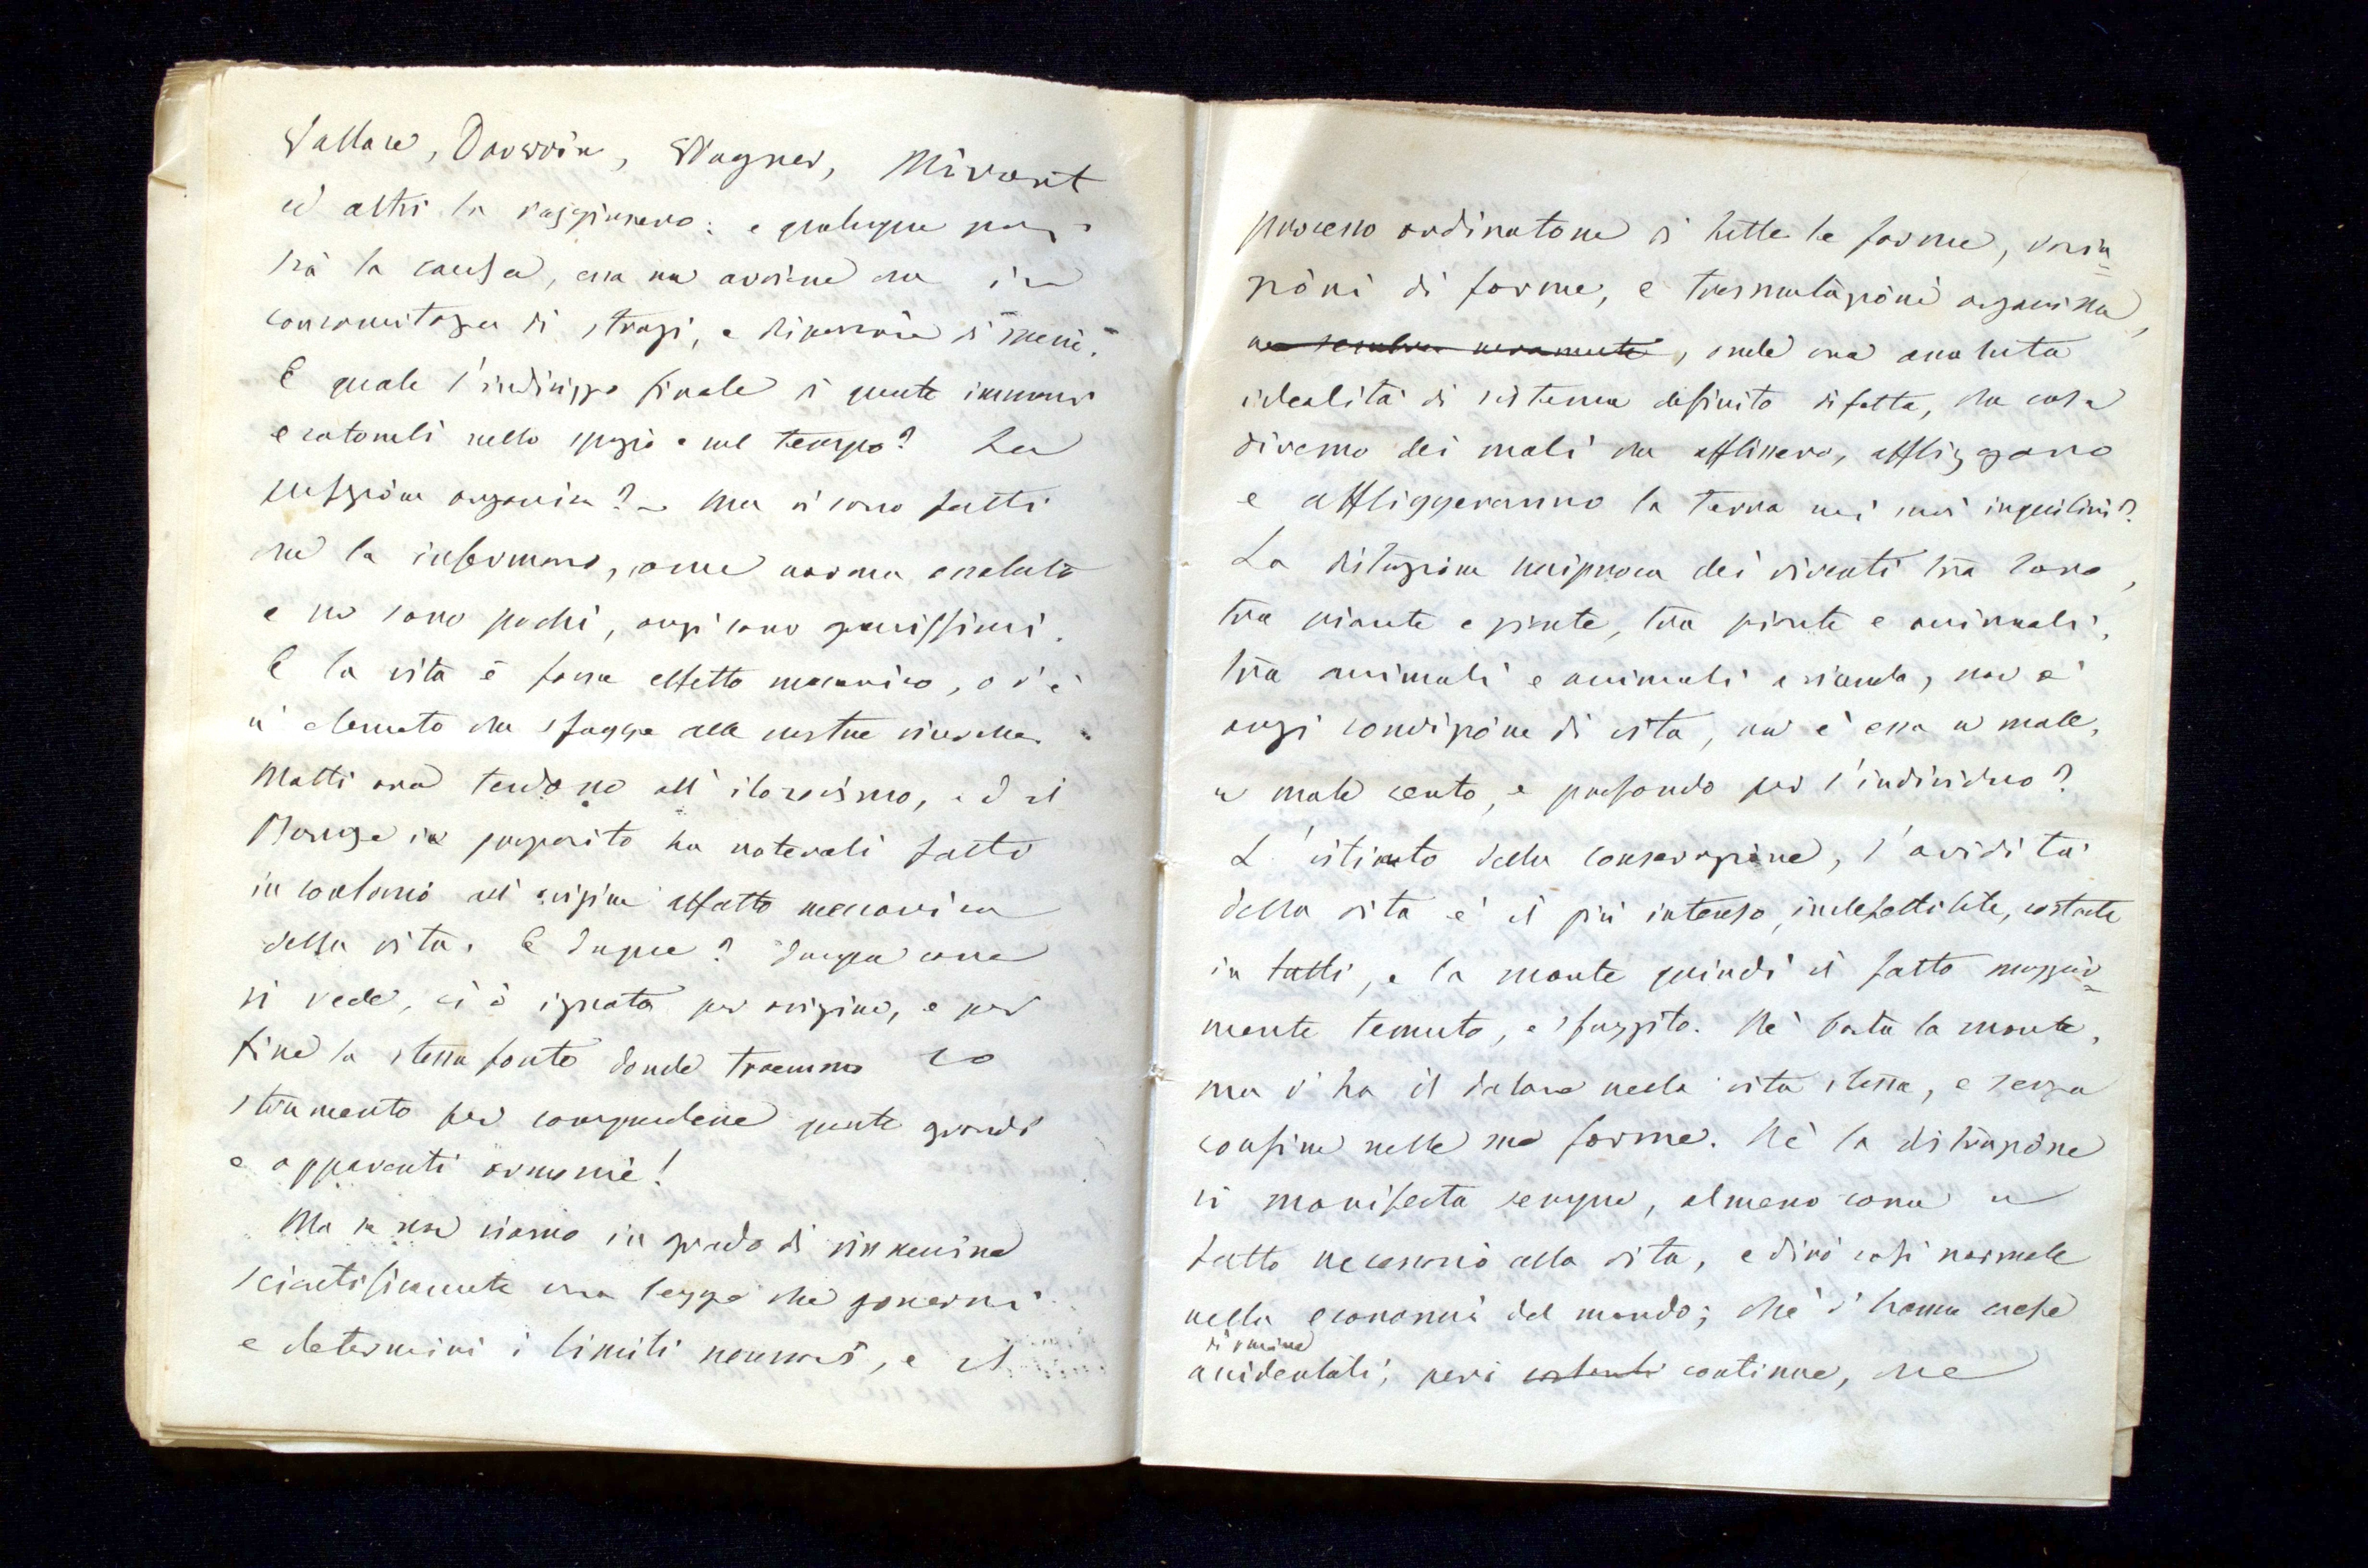 Wallace, Darwin, Wagner, Mivart
ed altri la raggiunsero: e qualunque
sia la causa, essa non avviene che in
concomitanza di stragi, e di specie.
E quale l'indirizzo finale di queste immense
ecatombi nello spazio e nel tempo? La
perfezione organica? – Ma vi sono fatti
che la infermano, come norma assoluta
e non sono pochi, anzi sono gravissimi.
E la vita è forse effetto meccanico, o v'è
un elemento che sfugge alle nostre ricerche.
Molti ora tendono all'ilozoismo, ed il
in proposito ha notevoli fatti
in contrario all'origine affatto meccanica
della vita. E dunque? dunque come
si vede, ci è ignota per origine, e per
fine la stessa fonte donde traemmo lo
strumento per comprendere queste grandi
e apparenti armonie!
Ma se non siamo in grado di rinvenire
scientificamente una legge che governi
e determini i limiti necessari, e il
processo ordinatore di tutte le forme, varia=
zioni di forme, e trasmutazioni organiche,
ne sembra veramente, onde una assoluta
idealità di sistema definito difetta, che cosa
diremo dei mali che afflissero, affliggono
e affliggeranno la terra nei suoi inquilini?
La distruzione reciproca dei viventi tra loro,
tra piante e piante, tra piante e animali,
tra animali e animali a vicenda, non è
anzi condizione di vita, non è essa un male,
un male certo, e profondo per l'individuo?
L'istinto della conservazione, l'avidità
della vita è il più intenso, indefettibile, costante
in tutti, e la morte quindi il fatto maggior=
mente temuto, e sfuggito. Nè basta la morte,
ma v'ha il dolore nella vita stessa, e senza
confine nelle sue forme. Nè la distruzione
si manifesta sempre, almeno come un
fatto necessario alla vita, e dirò così normale
nella economia del mondo; chè v'hanno cause
di rovina
accidentali, però costanti continue, che